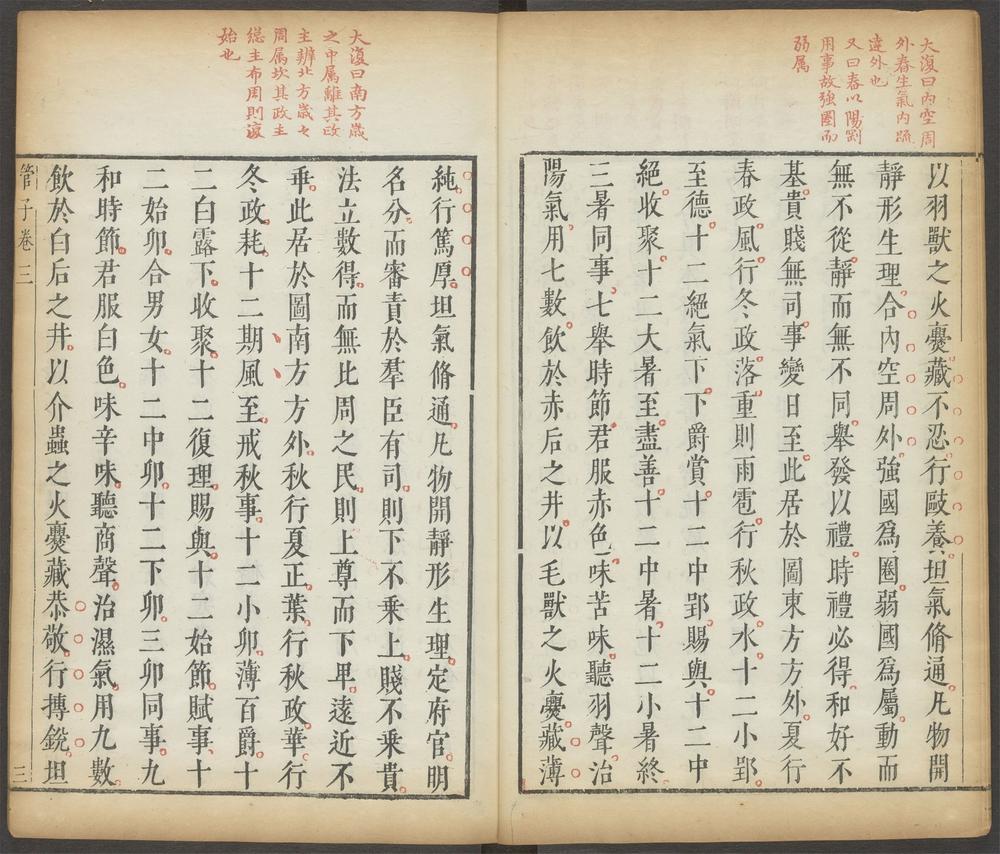 大澓曰內空周
外春生氣內疏
達外也
又曰春以陽剛
用事故強圈而
弱属
以羽獸之火爨藏不忍行敺養坦氣脩通凡物開
靜形生理合內空周外強國為圈弱國為屬動而
無不從靜而無不同舉發以禮時禮必得和好不
基貴賤無司事變日至此居於圖東方方外夏行
春政風行冬政落重則雨雹行秋政水十二小郢
至德十二絕氣下下爵賞十二中郢賜與十二中
絕收聚十二大暑至盡善十二中暑十二小暑終
三暑同事七舉時節君服赤色味苦味聽羽聲治
陽氣用七數飲於赤后之井以毛獸之火爨藏薄
大澓曰南方歲
之中属離其政
主辨北方歲之
周属坎其政主
總主布周則澓
始也
純行篤厚坦氣脩通凡物開靜形生理定府官明
名分而審責於羣臣有司則下不乘上賤不乘貴
法立數得而無比周之民則上尊而下卑遠近不
乖此居於圖南方方外秋行夏正葉行秋政華行
冬政耗十二期風至戒秋事十二小卯薄百爵十
二白露下收聚十二復理賜與十二始節賦事十
二始卯合男女十二中卯十二下卯三卯同事九
和時節君服白色味辛味聽商聲治濕氣用九數
飲於白后之井以介蟲之火爨藏恭敬行摶銳坦
管子卷三
三